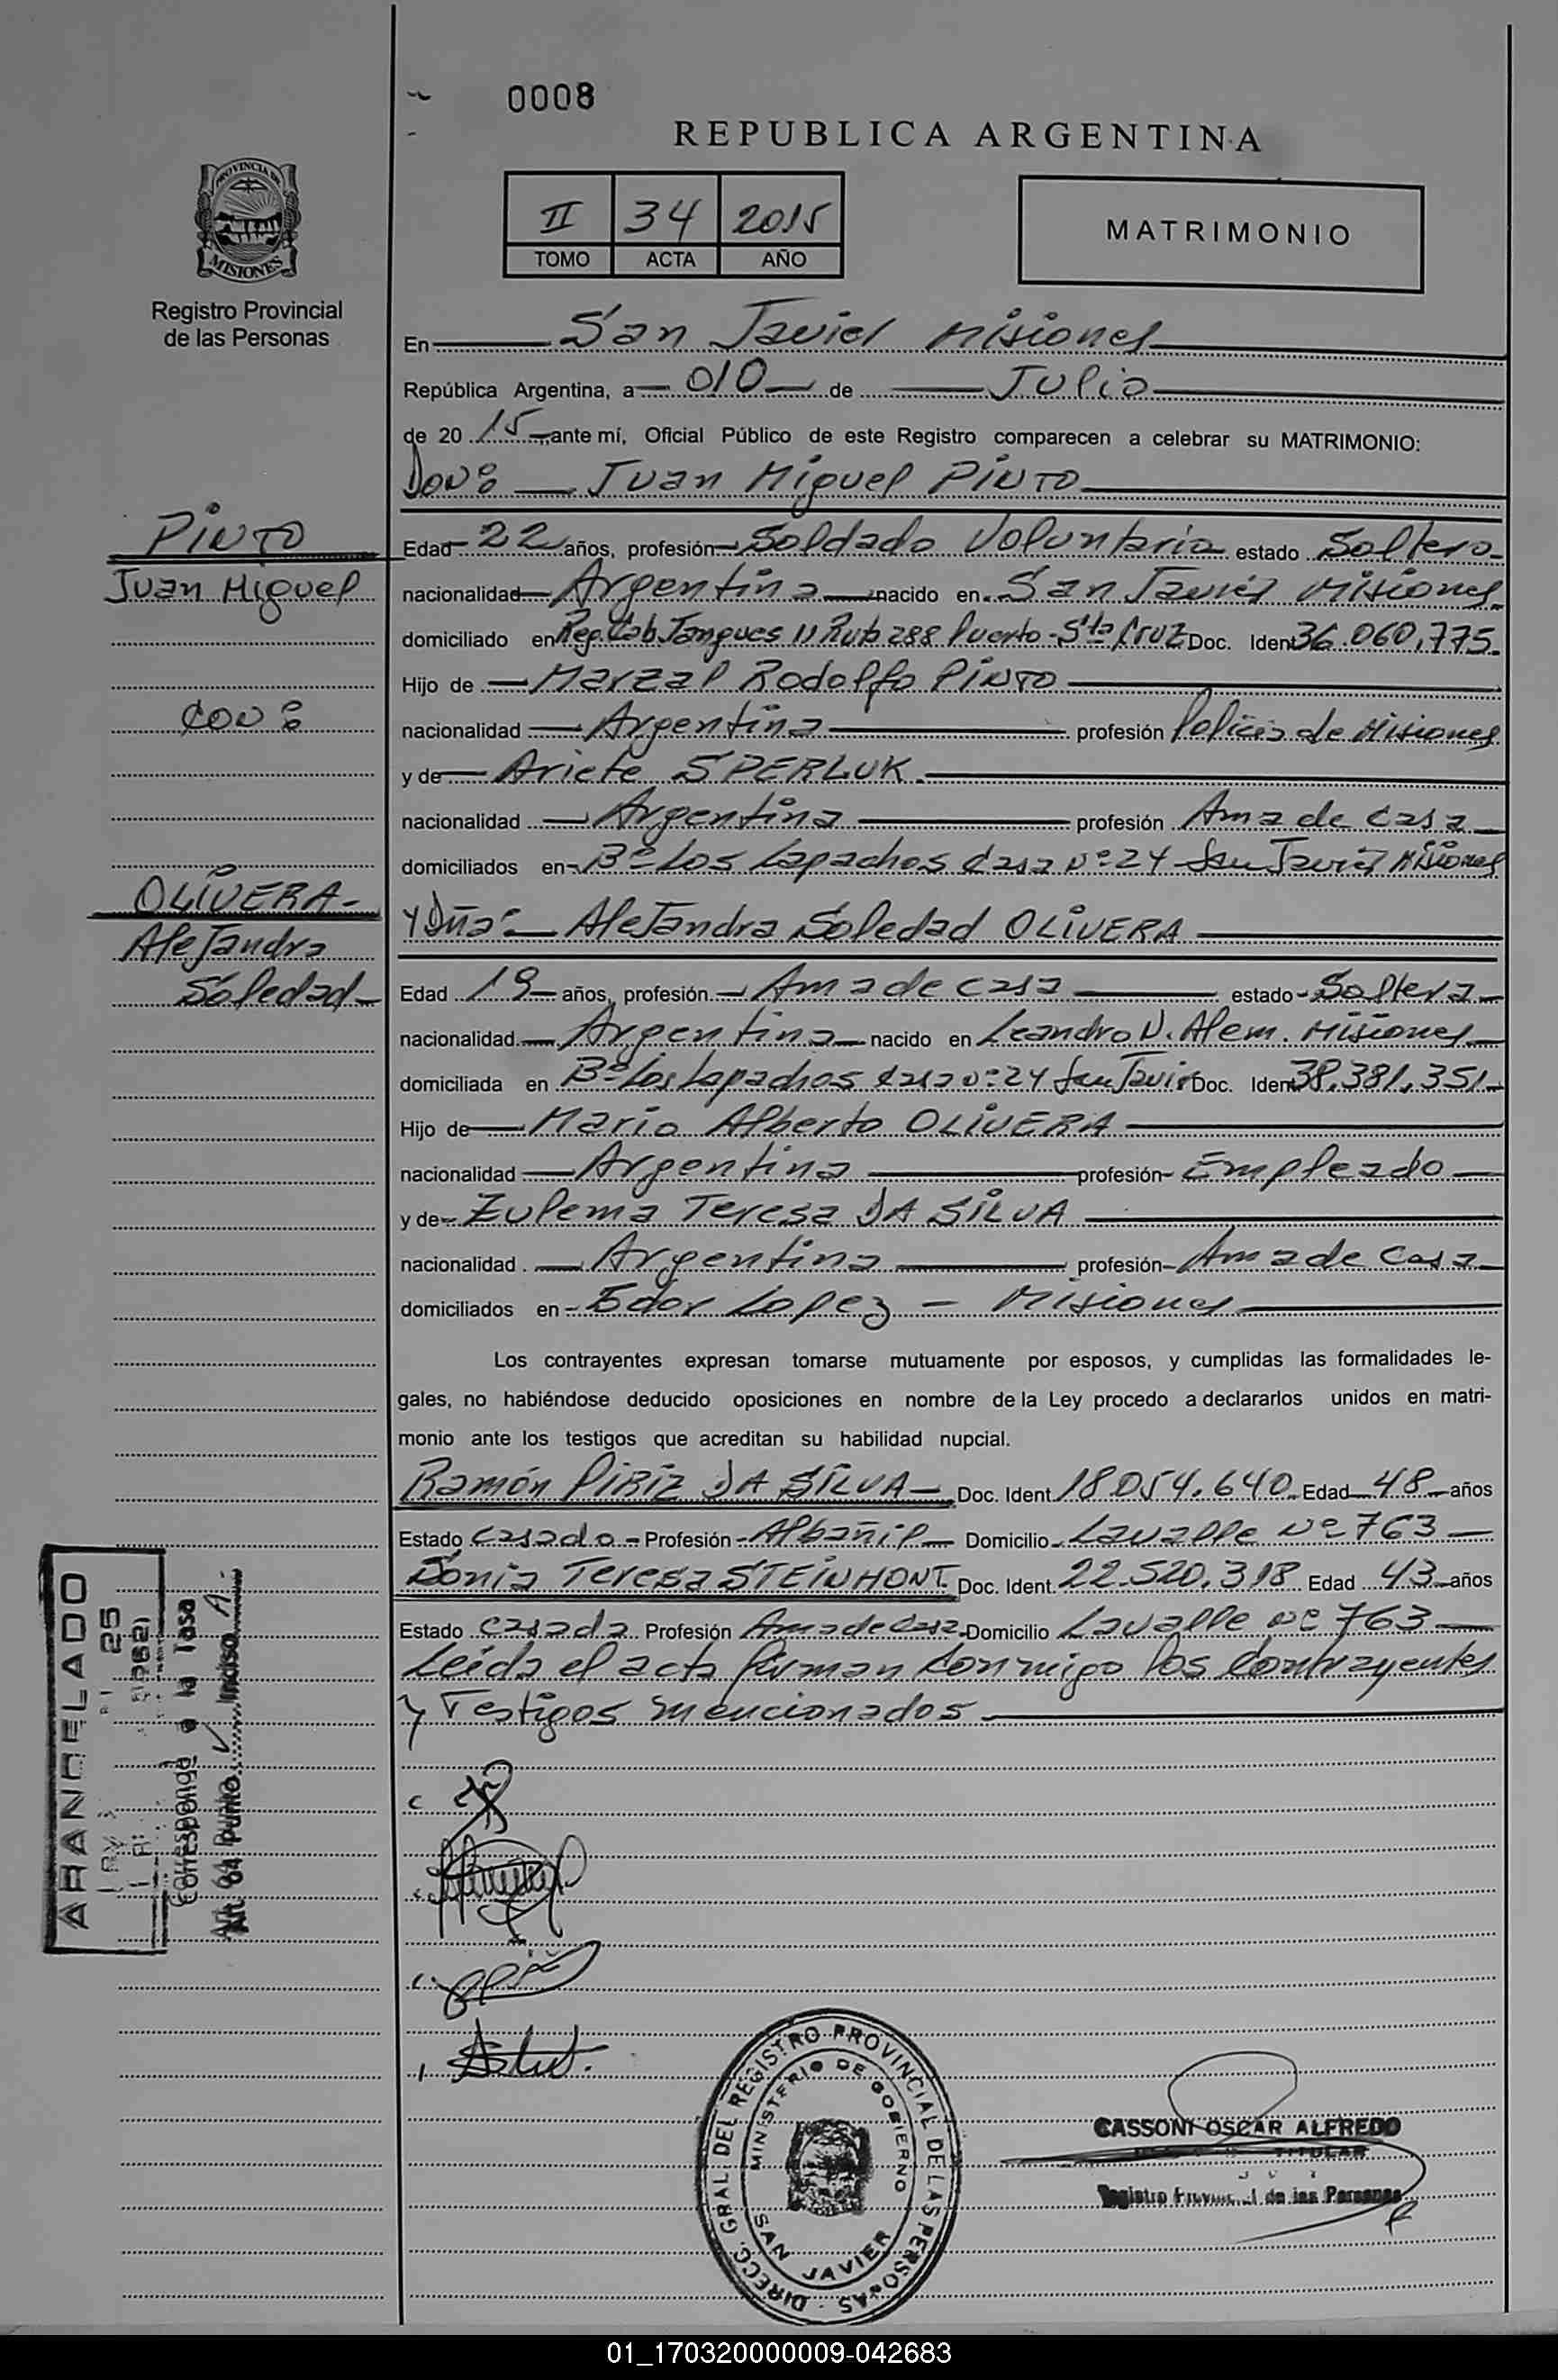 0008
REPUBLICA ARGENTINA
PROVINCIA DE
MISIONES
Registro Provincial
de las Personas
II 34 2015
TOMO ACTA AÑO
MATRIMONIO
En San Javier Misiones
República Argentina, a 010 de Julio
de 2015, ante mí, Oficial Público de este Registro comparecen a celebrar su MATRIMONIO:
Don: Juan Miguel PINTO
PINTO
Juan Miguel
Edad 22 años, profesión Soldado Voluntario estado Soltero
nacionalidad Argentina nacido en San Javier Misiones
domiciliado en Reg. Cab. Tanques 11 Ruta 288 Puerto - Sta Cruz Doc. Ident 36.060.775
Hijo de Marzal Rodolfo PINTO
CON:
nacionalidad Argentina profesión Policía de Misiones
y de Ariete SPERLUK
nacionalidad Argentina profesión Ama de casa
domiciliados en Bº Los Lapachos Casa Nº 24 San Javier Misiones
OLIVERA
Alejandra
Soledad
Y Dña: Alejandra Soledad OLIVERA
Edad 19 años, profesión Ama de casa estado Soltera
nacionalidad Argentina nacido en Leandro N. Alem. Misiones
domiciliada en Bº Los Lapachos casa nº 24 San Javier Doc. Ident 38.381.351
Hijo de Mario Alberto OLIVERA
nacionalidad Argentina profesión Empleado
y de Zulema Teresa DA SILVA
nacionalidad Argentina profesión Ama de Casa
domiciliados en Lopez - Misiones
Los contrayentes expresan tomarse mutuamente por esposos, y cumplidas las formalidades le-
gales, no habiéndose deducido oposiciones en nombre de la Ley procedo a declararlos unidos en matri-
monio ante los testigos que acreditan su habilidad nupcial.
Ramón PIRIZ DA SILVA Doc. Ident 18.054.640 Edad 48 años
Estado Casado Profesión Albañil Domicilio Lavalle Nº 763
Sonia Teresa STEINHONT. Doc. Ident. 22.520.318 Edad 43 años
Estado casada Profesión Ama de Casa Domicilio Lavalle Nº 763
Leída el acta firman conmigo los Contrayentes
y Testigos mencionados
ARANCELADO
25
Corresponde a la Tasa
Art. 64 Punto Inciso A.-
DIRECC. GRAL. DEL REGISTRO PROVINCIAL DE LAS PERSONAS
MINISTERIO DE GOBIERNO
SAN JAVIER
CASSONI OSCAR ALFREDO
TITULAR
Registro Provincial de las Personas
01_170320000009-042683